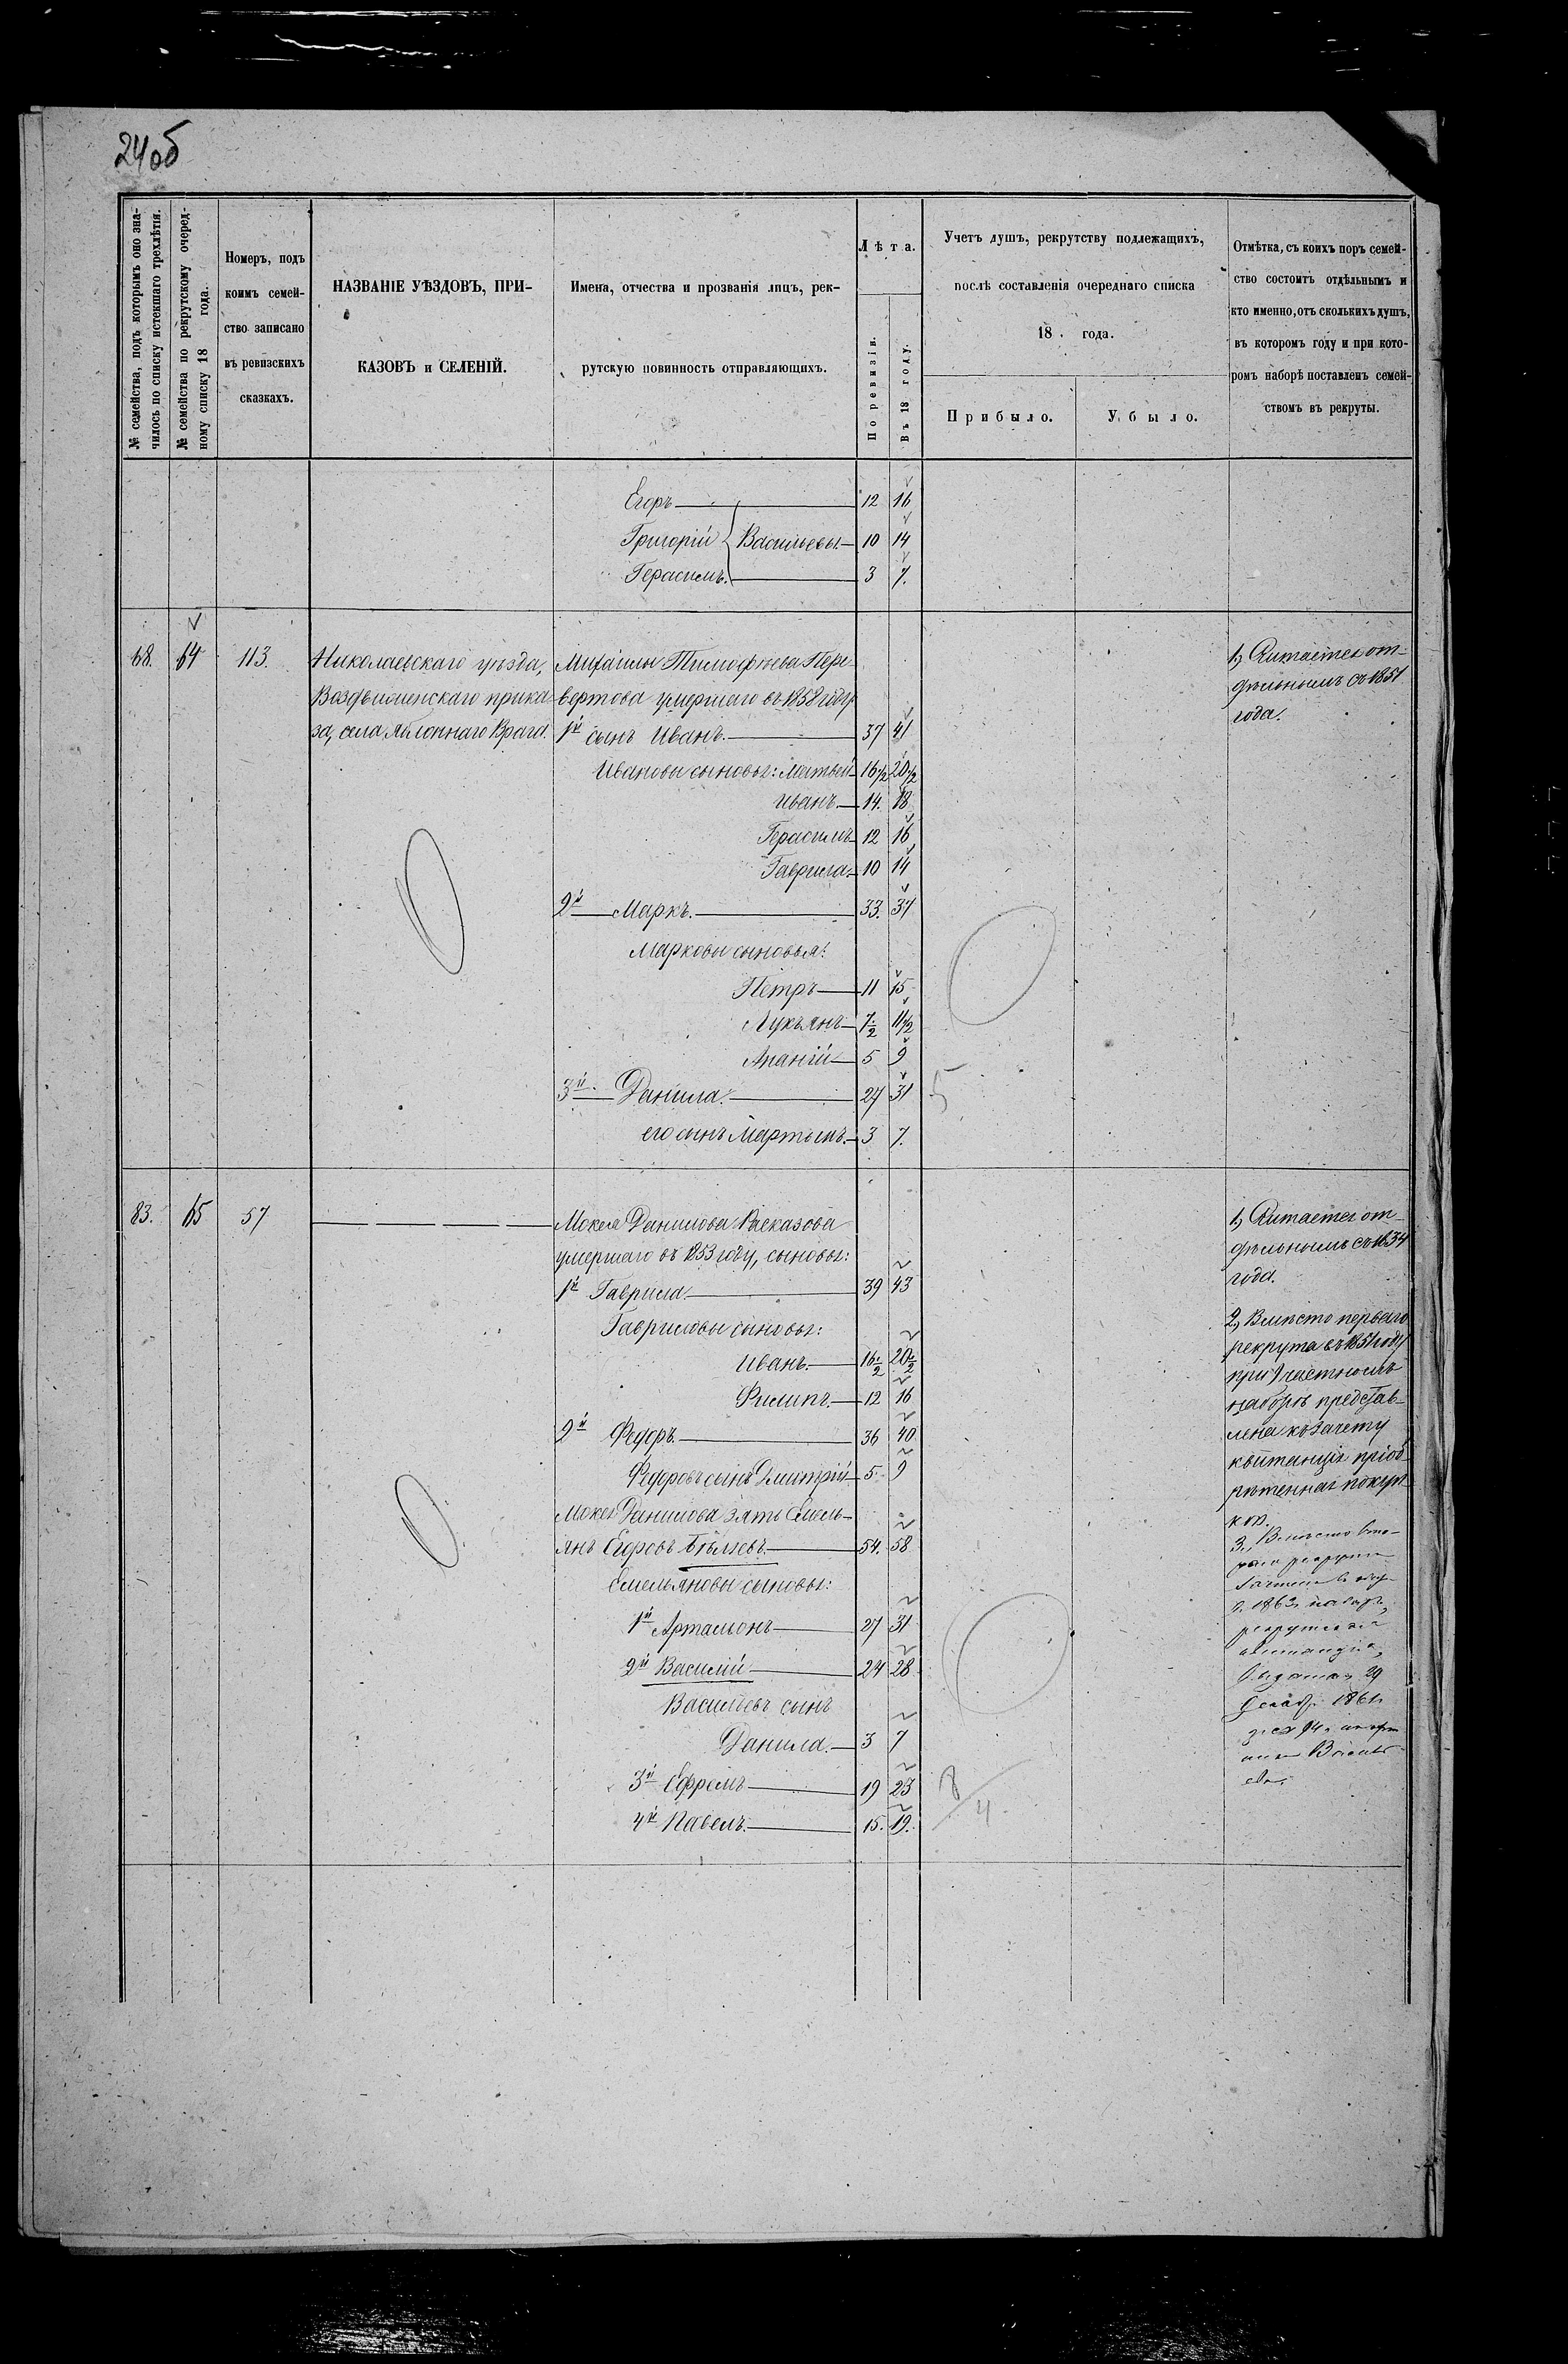 24об
№ семейства, подъ которымъ оно зна-
чилось по списку истекшаго трехлѣтія.
№ семейства по рекрутскому очеред-
ному списку 18 года.
Номеръ, подъ
коимъ семей-
ство записано
въ ревизскихъ
сказкахъ.
НАЗВАНІЕ УѢЗДОВЪ, ПРИ-
КАЗОВЪ и СЕЛЕНІЙ.
Имена, отчества и прозванія лицъ, рек-
рутскую повинность отправляющихъ.
Лѣта.
По ревизіи.
Въ 18 году.
Учетъ душъ, рекрутству подлежащихъ,
послѣ составленія очереднаго списка
18 . года.
Прибыло.
Убыло.
Отмѣтка, съ коихъ поръ семей-
ство состоитъ отдѣльнымъ и
кто именно, отъ сколькихъ душъ,
въ которомъ году и при кото-
ромъ наборѣ поставленъ семей-
ствомъ въ рекруты.
Егоръ 12 16
Григорій Васильевы 10 14
Герасимъ. 3 7.
68. 64 113.
Николаевскаго уѣзда,
Воздвиженскаго прика-
за, села Яблоннаго Врага.
Михаилы Тимофѣева Пере-
вертова умершаго въ 1858 году
1й сынъ Иванъ. 37 41
Ивановы сыновья: Матвѣй 16 1/2 20 1/2
Иванъ 14. 18
Герасимъ 12 16
Гаврила 10 14
2й Маркъ. 33. 37
Марковы сыновья:
Петръ 11 15
Лукъянъ 7 1/2 11 1/2
Ананій 5 9
3й. Данила. 27 31
его сынъ Мартынъ. 3 7.
5
1., Считается от-
дѣльнымъ съ 1851
года.
83. 65 57
Мокея Данилова Расказова
умершаго въ 1853 году, сыновья:
1й Гаврила 39 43
Гавриловы сыновья:
Иванъ. 16 1/2 20 1/2
Филипъ. 12 16
2й Федоръ. 36 40
Федоровъ сынъ Дмитрій 5. 9
Мокея Данилова зять Емель-
янъ Егоровъ Бѣляевъ. 54. 58
Емельяновы сыновья:
1й Артамонъ 27 31
2й Василій 24 28
Васильевъ сынъ
Данила. 3 7
3й Ефремъ 19 23
4й Павелъ. 15. 19.
8/4
1., Считается от-
дѣльнымъ съ 1834
года.
2., Вмѣсто перваго
рекрута въ 1851 году
при частномъ
наборѣ представ-
лена къ зачету
квитанція пріоб-
рѣтенная покуп-
кой.
3., Вмѣсто вто-
раго рекрута
1863 наборъ,
рекрутская
квитанція,
выданная 29
Декаб. 1861